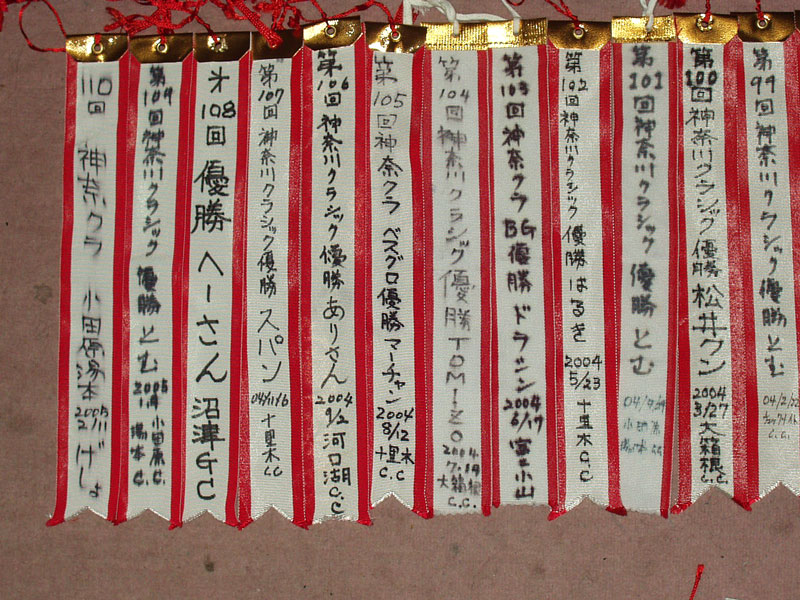 110回 神奈クラ 小田原湯本 2005 2/11 げしょ
第109回神奈川クラシック 優勝 とむ 2005 1/9 小田原湯本C.C.
才108回 優勝 へーさん 沼津GC
第107回 神奈川クラシック優勝 スパン 04/11/6 十里木CC
第106回 神奈川クラシック 優勝 ありさん 2004 9/2 河口湖C.C
第105回神奈クラ ベスグロ優勝 マーチャン 2004 8/12 十里木C.C
第104回神奈川クラシック 優勝 TOMIZO 2004 大箱根C.C.
第103回神奈クラ BG優勝 ドラシン 2004 6/19 富士小山
第102回神奈川クラシック 優勝 はるき 2004 5/23 十里木C.C
第101回神奈川クラシック 優勝 とむ 04/ 小田原湯本CC
第100回神奈川クラシック 優勝 松井クン 2004 3/27 大箱根C.C.
第99回神奈川クラシック 優勝 とむ 04/2/22 C.C.